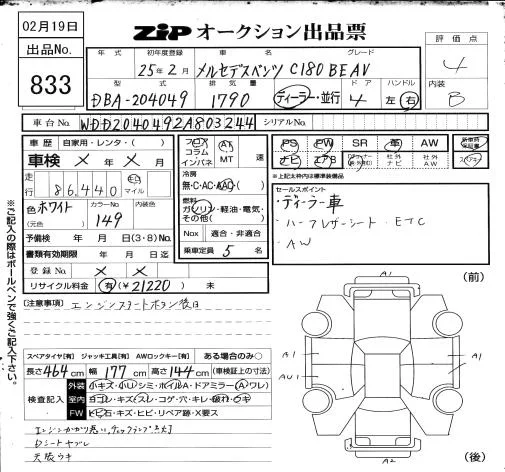 02月19日
ZIP オークション出品票
出品No.
833
評価点
4
内装
B
年式 初年度登録 車名 グレード
25年2月 メルセデスベンツ C180 BE AV
型式 排気量 ドア ハンドル
DBA-204049 1790 ディーラー・並行 4 左 右
車台No. WDD2040492A803244 シリアルNo.
車歴 自家用・レンタ・( )
車検 × 年 × 月
走行 86,440 キロ マイル
色 ホワイト カラーNo. 149 内装色
(元色)
予備検 年 月 日(3・8)Mo.
書類有効期限 年 月 日迄
登録No. × ×
リサイクル料金 有(¥21220) 未
フロア コラム インパネ AT MT 速
冷房
無・C・AC・AAC( )
燃料
ガソリン・軽油・電気・その他( )
Nox 適合・非適合
乗車定員 5 名
PS PW SR 革 AW
ナビ エアB 社外ナビ 社外AW
新車時保証書
※上記太枠内は標準装備品
セールスポイント
・ディーラー車
・ハーフレザーシート・ETC
・AW
[注意事項] エンジンスタートボタン後日
スペアタイヤ[有] ジャッキ工具[有] AWロックキー[有] ある場合のみ○
長さ464cm 幅177cm 高さ144cm (車検証上の寸法)
検査記入
外装 小キズ・小凹・シミ・ホイルA・ドアミラー(A・ワレ)
室内 ヨゴレ・キズ・スレ・コゲ・穴・キレ・破れ・ウキ
FW ヒビ石・キズ・ヒビ・リペア跡・X要ス
エンジンかかり悪い、チェックランプ点灯
Dシートヤブレ
天張ウキ
※ご記入の際はボールペンで強くご記入下さい。
A1
(前)
A1
AU1
A1
A2
(後)